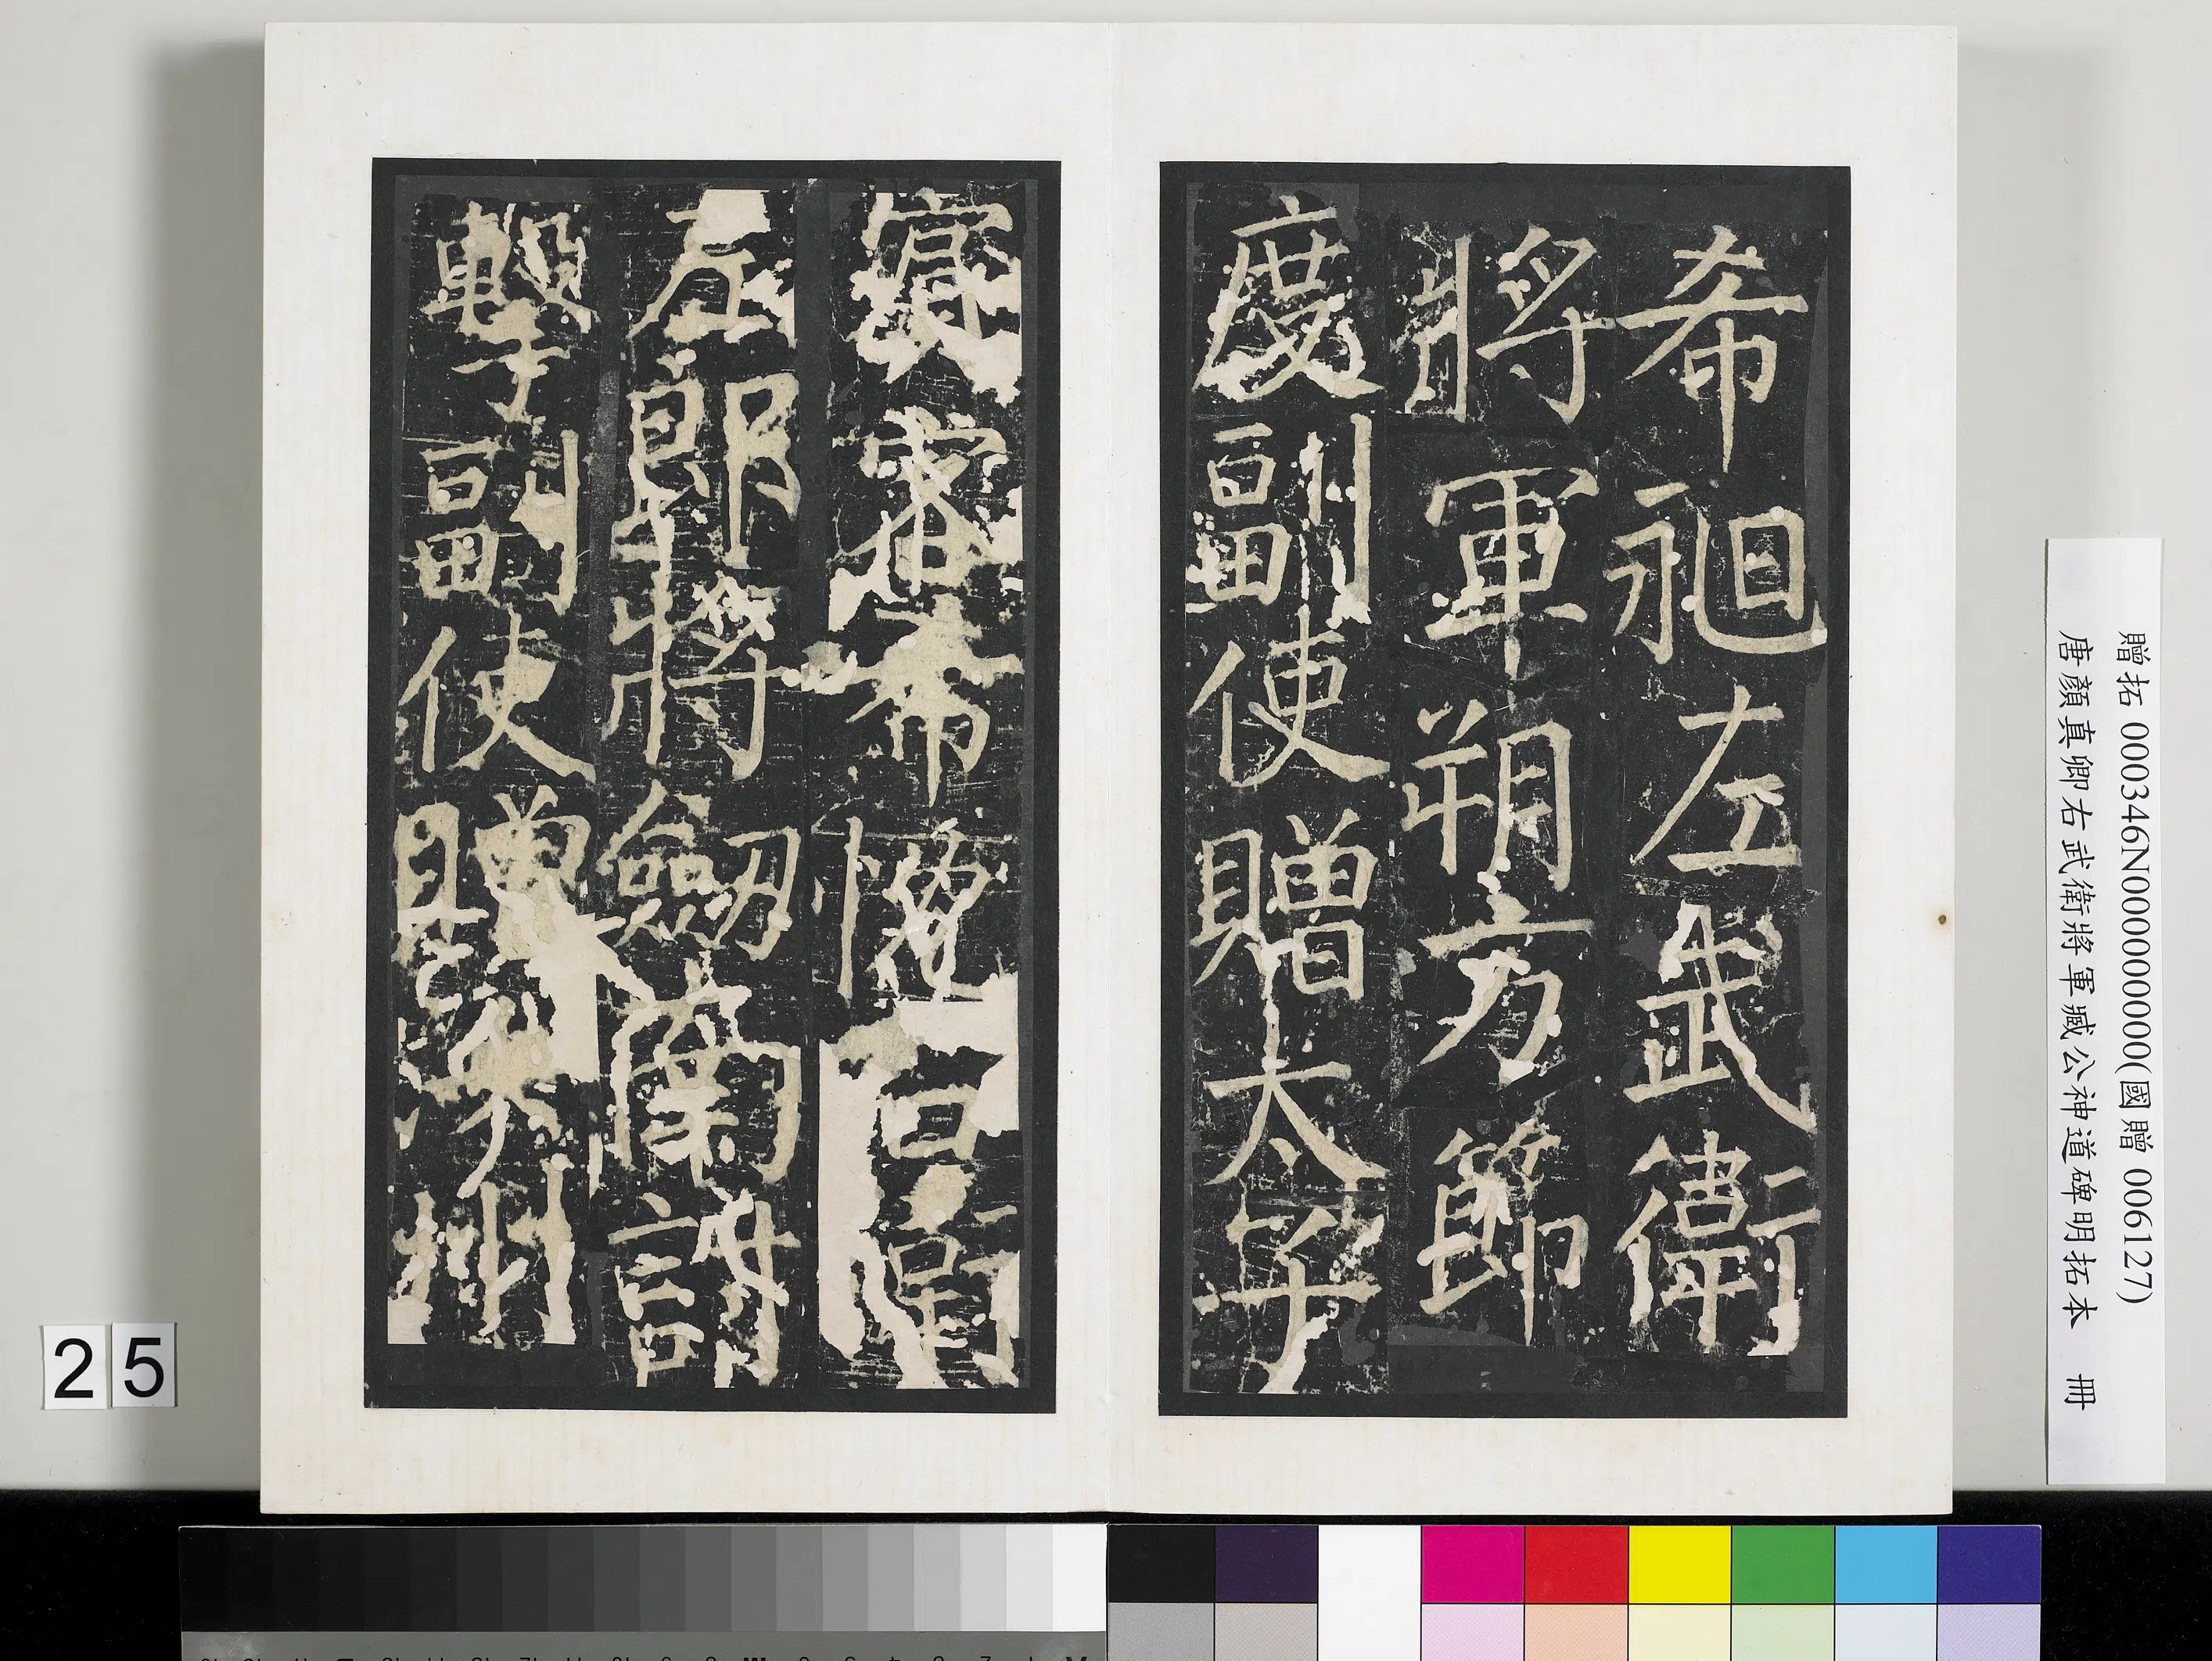 希昶左武衛
將軍朔方節
度副使贈太子
賓客希
郎將劒南討
擊副使贈州
贈拓 000346N000000000(國贈 006127)
唐顏真卿右武衛將軍臧公神道碑明拓本 冊
25